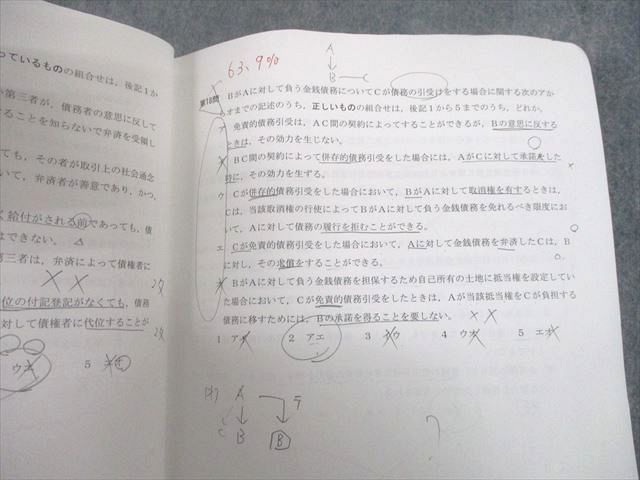 っているものの組合せは，後記1か
第三者が，債務者の意思に反して
ることを知らないで弁済を受領し
ても，その者が取引上の社会通念
いて，弁済者が善意であり，かつ，
く給付がされる前であっても，債
はできない。
三者は，弁済によって債権者に
位の付記登記がなくても，債務
対して債権者に代位することが
ウオ 5
63.9%
A
B C
第18問 BがAに対して負う金銭債務についてCが債務の引受けをする場合に関する次のアか
オまでの記述のうち，正しいものの組合せは，後記1から5までのうち，どれか。
ア 免責的債務引受は，AC間の契約によってすることができるが，Bの意思に反する
ときは，その効力を生じない。
BC間の契約によって併存的債務引受をした場合には，AがCに対して承諾をした
時に，その効力を生ずる。
ウ Cが併存的債務引受をした場合において，BがAに対して取消権を有するときは，
Cは，当該取消権の行使によってBがAに対して負う金銭債務を免れるべき限度にお
いて，Aに対して債務の履行を拒むことができる。
エ Cが免責的債務引受をした場合において，Aに対して金銭債務を弁済したCは，B
に対し，その求償をすることができる。
BがAに対して負う金銭債務を担保するため自己所有の土地に抵当権を設定してい
た場合において，Cが免責的債務引受をしたときは，Aが当該抵当権をCが負担する
債務に移すためには，Bの承諾を得ることを要しない。
1 アイ 2 アエ 3 イウ 4 ウオ 5 エオ
A
C B B